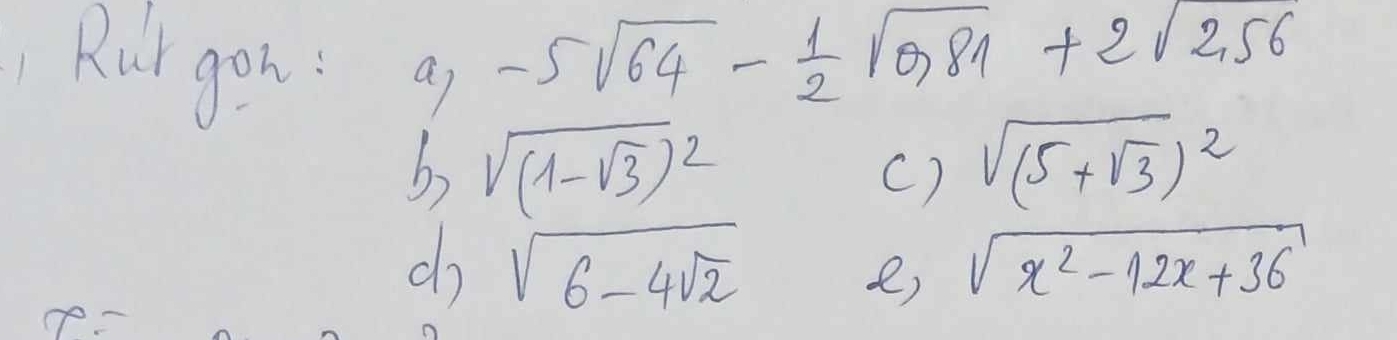 , Rút gọn : a, -5√64 - 1/2 √0,81 + 2√2,56
b, √(1-√3)² c) √(5+√3)²
d, √6-4√2 e, √x²-12x+36